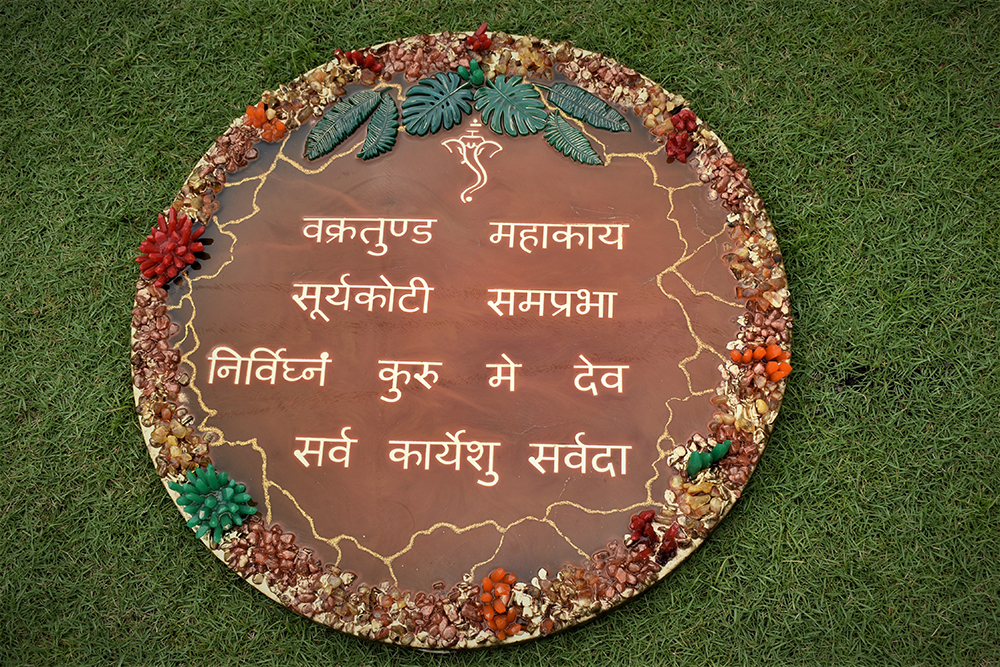 वक्रतुण्ड महाकाय
सूर्यकोटी समप्रभा
निर्विघ्नं कुरु मे देव
सर्व कार्येशु सर्वदा